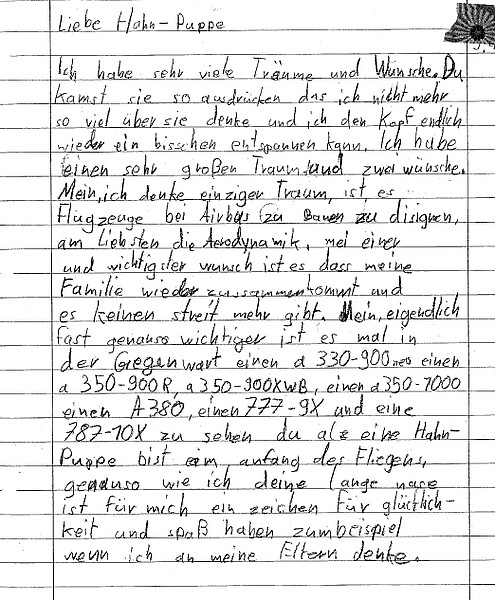 Liebe Hahn-Puppe
Ich habe sehr viele Träume und Wünsche. Du
kamst sie so ausdrücken das ich nicht mehr
so viel über sie denke und ich den Kopf endlich
wieder ein bisschen entspannen kann. Ich habe
einen sehr großen Traum und zwei wünsche.
Mein, ich denke einziger Traum, ist es
Flugzeuge bei Airbus zu Bauen zu disignen,
am Liebsten die Aerodynamik. mei einer
und wichtigster wunsch ist es dass meine
Familie wieder zusammenkommt und
es keinen streit mehr gibt. Mein, eigendlich
fast genauso wichtiger ist es mal in
der Gegenwart einen a 330-900neo einen
a 350-900R, a 350-900XWB, einen a350-1000
einen A380, einen 777-9X und eine
787-10X zu sehen du als eine Hahn-
Puppe bist eim anfang des Fliegens,
genauso wie ich deine lange nase
ist für mich ein zeichen für glücklich-
keit und spaß haben zumbeispiel
wenn ich an meine Eltern denke.